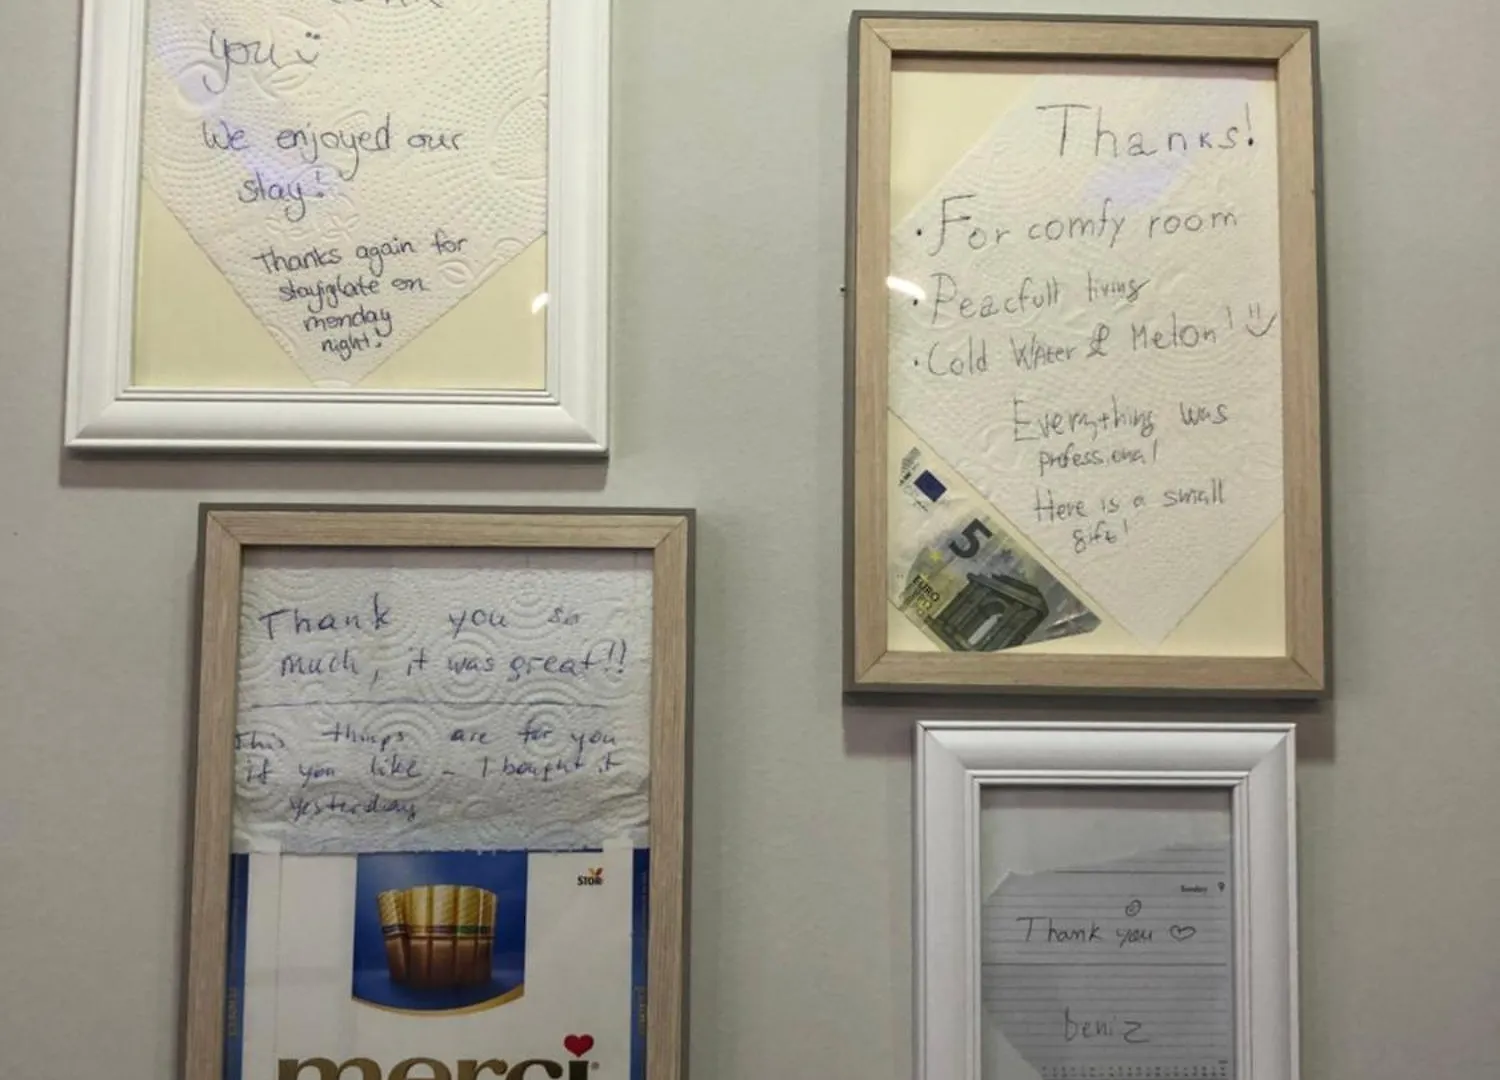 you
We enjoyed our
stay!
Thanks again for
staying late on
monday
night!
Thanks!
· For comfy room
· Peacfull living
· Cold Water & Melon!
Everything was
professional
Here is a small
gift!
5
EURO
Thank you so
much, it was great!!
This things are for you
if you like - I bought it
yesterday
STORCK
merci
Sunday 9
Thank you ♡
Deniz